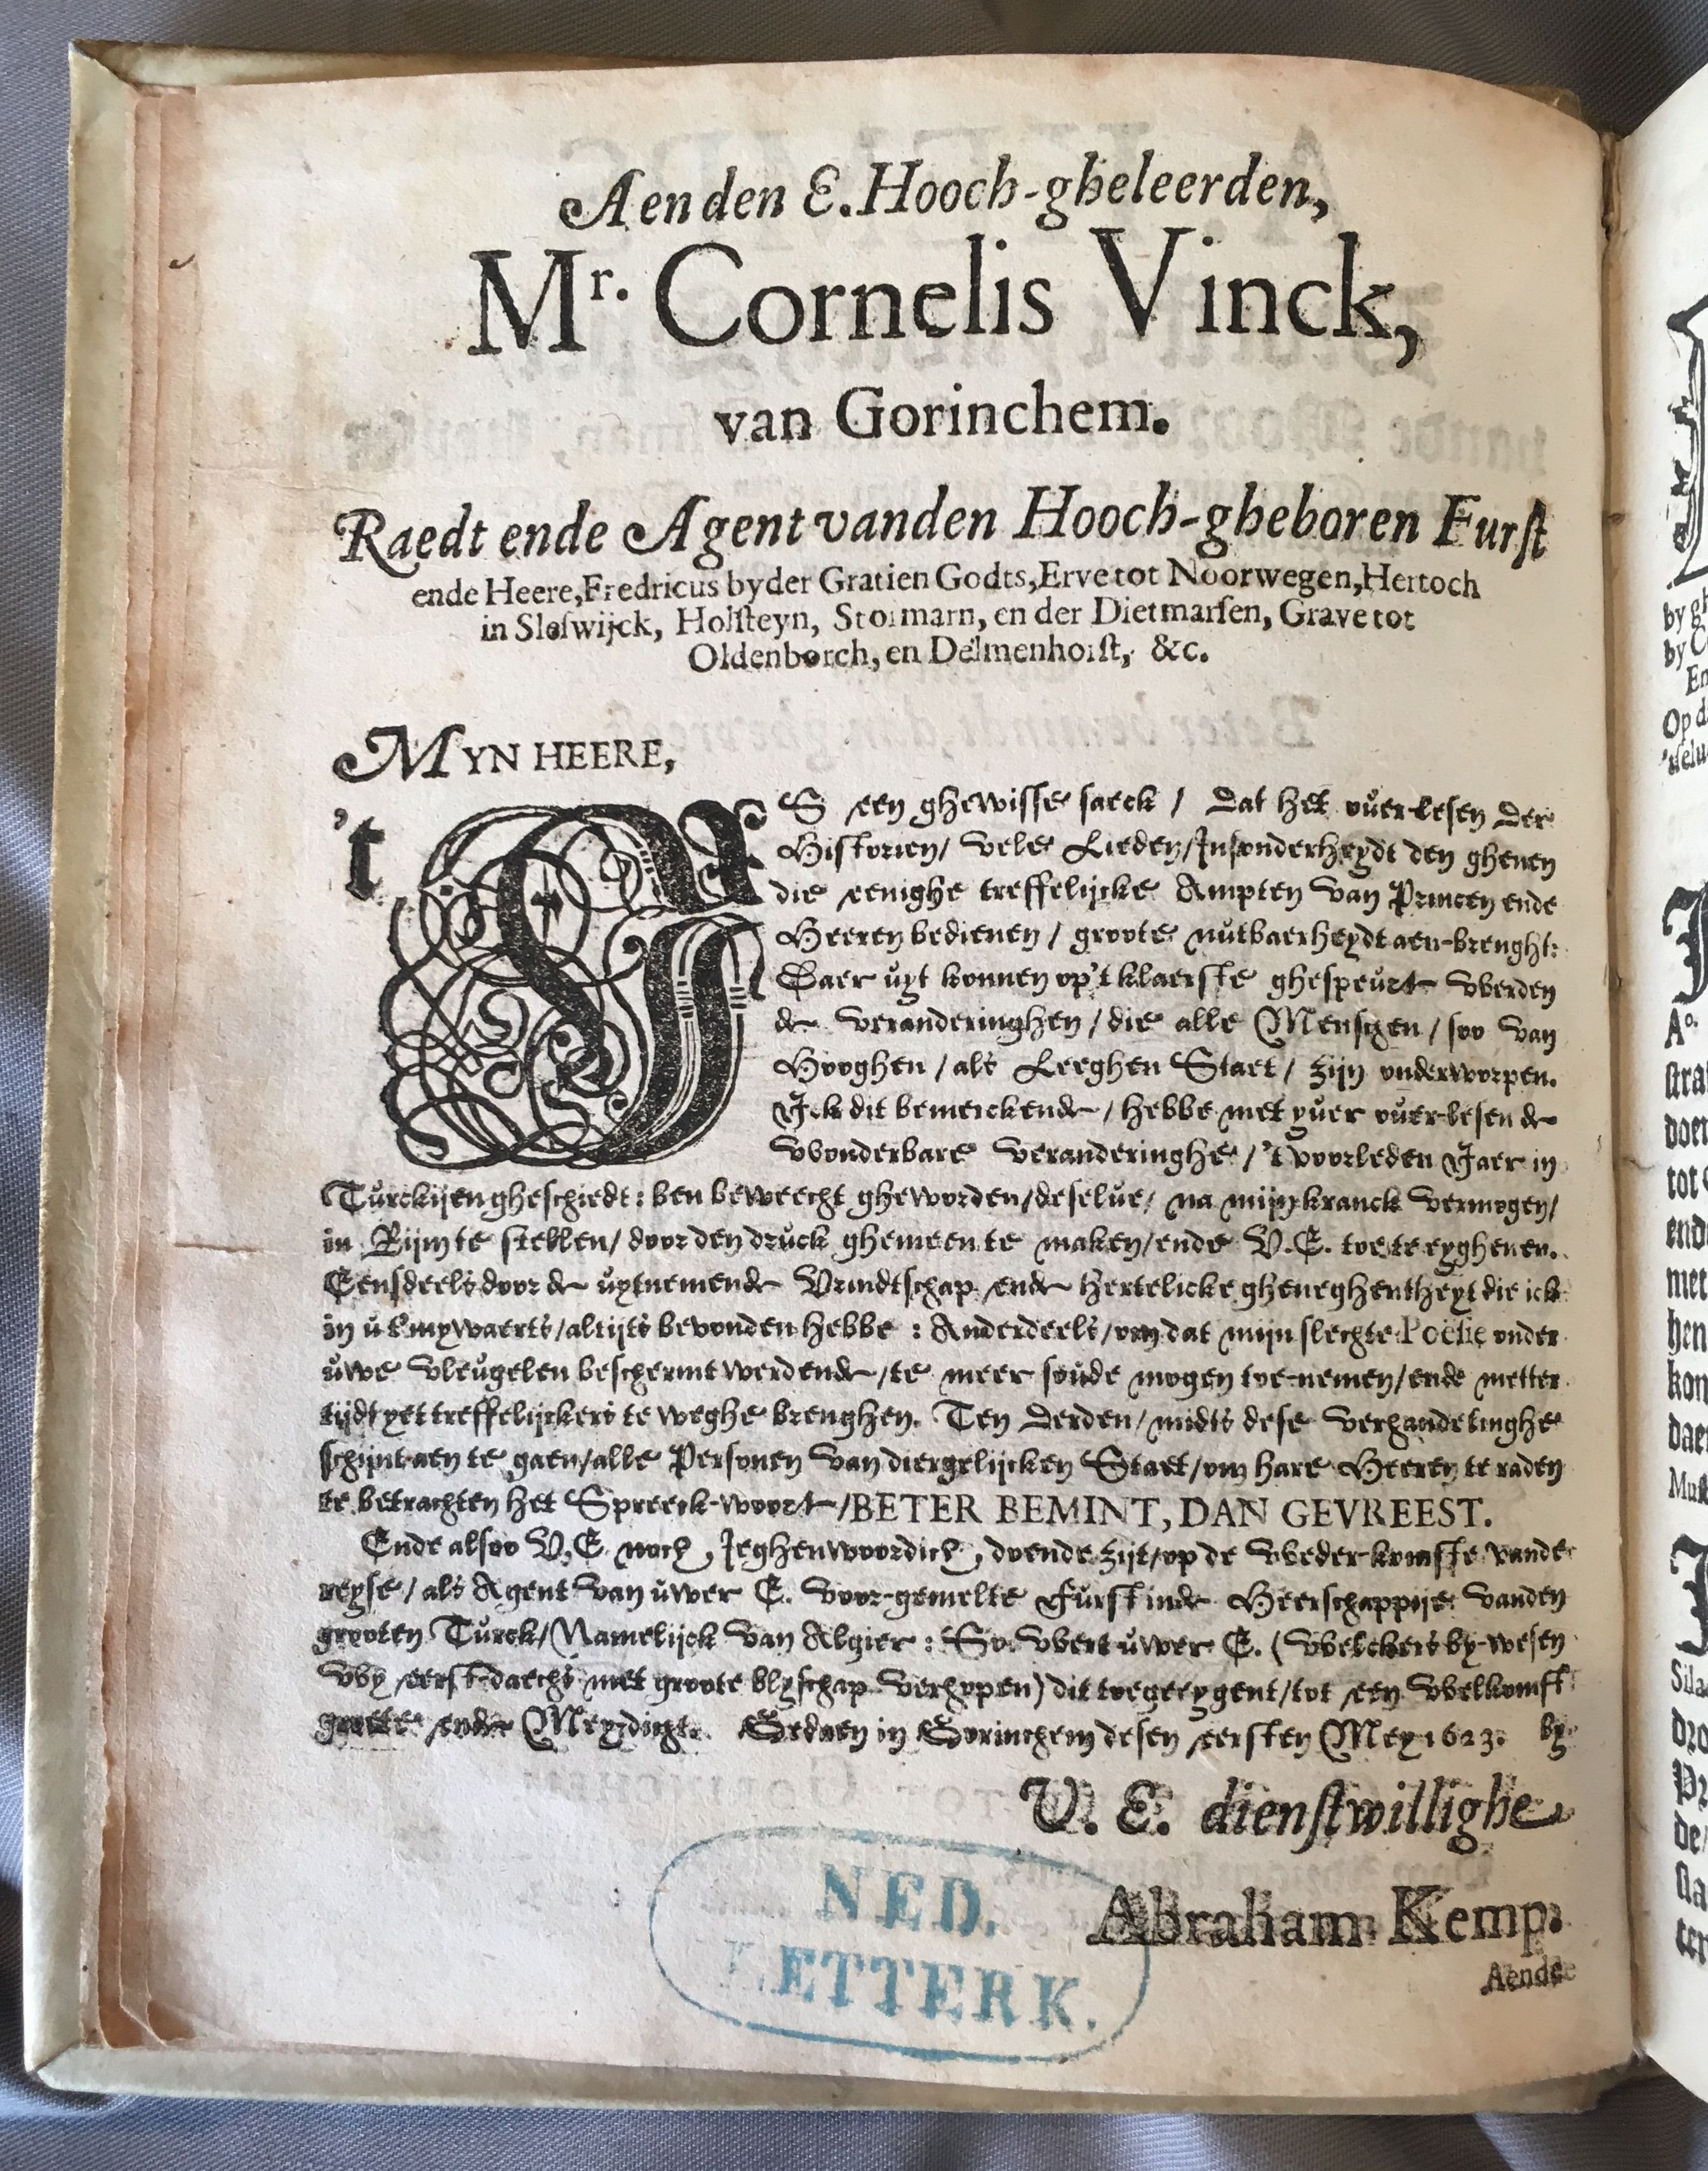 Aen den E. Hooch-gheleerden,
Mr. Cornelis Vinck,
van Gorinchem.
Raedt ende Agent vanden Hooch-gheboren Furst
ende Heere, Fredricus by der Gratien Godts, Erve tot Noorwegen, Hertoch
in Sleswijck, Holsteyn, Stormarn, en der Dietmarsen, Grave tot
Oldenborch, en Delmenhorst, &c.
MYN HEERE,
't IS een ghewisse saeck / dat het over-lesen der
Historien / vele Lieden / Insonderheydt den ghenen
die eenighe treffelijcke Ampten van Princen ende
Heeren bedienen / groote nutbaerheydt aen-brenght:
Daer uyt konnen op't klaerste ghespeurt werden
de veranderinghen / die alle Menschen / soo van
Hooghen / als Leeghen Staet / zijn onderworpen.
Ick dit bemerckende / hebbe met yver over-lesen de
wonderbare veranderinghe / 't voorleden Jaer in
Turckijen gheschiedt: ben beweecht gheworden / deselve / na mijn kranck vermogen /
in Rijm te stellen / door den druck ghemeen te maken / ende V.E. toe te eyghenen.
Eensdeels door de uytnemende Vrindtschap ende hertelicke gheneghentheyt die ick
in u t'mywaerts / altijts bevonden hebbe : Anderdeels / om dat mijn slechte Poësie onder
uwe vleugelen beschermt werdende / te meer soude mogen toe-nemen / ende metter
tijdt yet treffelijckers te weghe brenghen. Ten derden / midts dese verhandelinghe
schijnt aen te gaen / alle Personen van diergelijcken Staet / om hare Heeren te raden
te betrachten het Spreeck-woort / BETER BEMINT, DAN GEVREEST.
Ende alsoo V.E. noch, Jeghenwoordich, doende zijt / op de wederkomste vande
reyse / als Agent van uwer E. voor-gemelte Furst inde Heerschappije vanden
grooten Turck / Namelijck van Algier : So wert uwer E. ( welckers by-wesen
wy eerst-daechs met groote blyschap verhopen) dit toegeeygent / tot een welkomst
groete ende Meydicht. Gedaen in Gorinchem desen eersten Mey 1623. by
V. E. dienstwillighe
Abraham Kemp.
Aende
NED.
LETTERK.